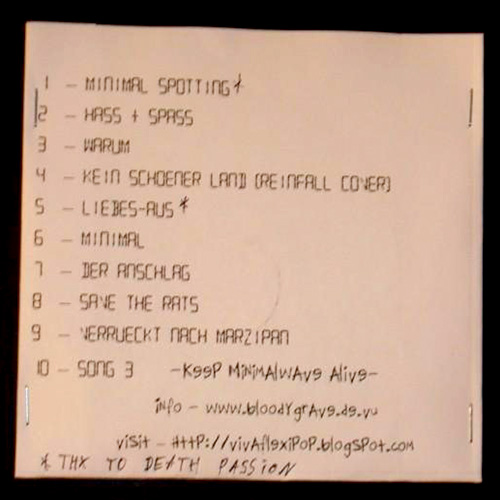 1 – MINIMAL SPOTTING*
2 – HASS + SPASS
3 – WARUM
4 – KEIN SCHOENER LAND (REINFALL COVER)
5 – LIEBES-AUS*
6 – MINIMAL
7 – DER ANSCHLAG
8 – SAVE THE RATS
9 – VERRUECKT NACH MARZIPAN
10 – SONG 3 -KeeP MiNiMAlWAve Alive-
iNfo – www.bloodYgrAve.de.vu
viSit – HttP://vivAflexiPOP.blogSPot.com
* THX TO DEATH PASSiON